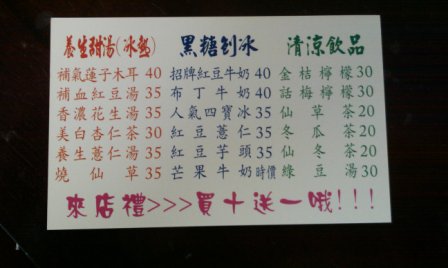 養生甜湯(冰熱) 黑糖刨冰 清涼飲品
補氣蓮子木耳 40 招牌紅豆牛奶 40 金桔檸檬 30
補血紅豆湯 35 布丁牛奶 40 話梅檸檬 30
香濃花生湯 35 人氣四寶冰 35 仙草茶 20
美白杏仁茶 30 紅豆薏仁 35 冬瓜茶 20
養生薏仁湯 35 紅豆芋頭 35 仙冬茶 20
燒仙草 35 芒果牛奶 時價 綠豆湯 30
來店禮>>>買十送一哦!!!